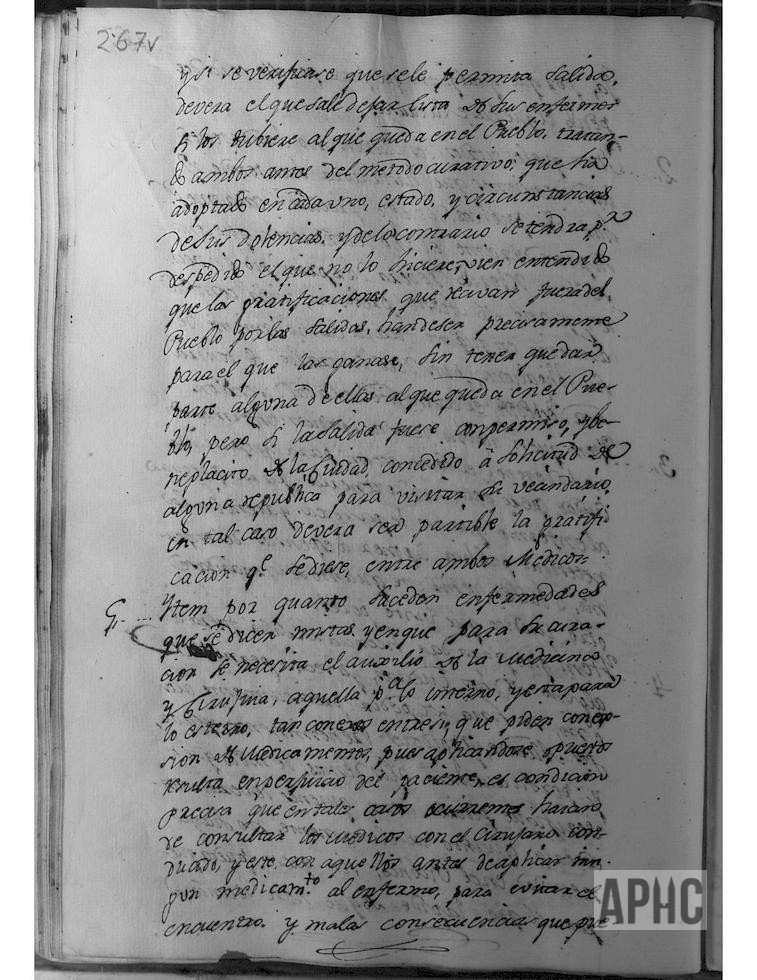 267v
y si se verificase que sele permita salida,
devera el que sale dejar lista de sus enfermos
si los tubiere al que queda en el Pueblo, tratan-
do ambos antes del metodo curativo, que ha
adoptado en cada vno, estado, y circunstancias
de sus dolencias, y delo contrario se tendra p.r
despedido el que no lo hiciere, vien entendido
que las gratificaciones que xavan fuera del
Pueblo por las salidas, handeser precisamente
para el que las ganase, sin tener que dar
parte alguna de ellas al que queda en el Pue-
blo, pero si la salida fuese con permiso, y be-
neplacito de la Ciudad, concedido à solicitud de
alguna republica para visitar su vecindario,
en tal caso devera ser partible la gratifi-
cacion q.e sediese, entre ambos Medicos=
5. Ytem por quanto suceden enfermedades
que se dicen mistas y en que para su cura-
cion se necesita el auxilio de la Medicina
y Cirujia, aquella p.a lo interno, y esta para
lo esterno, tan conexos entresi, que piden conex-
sion de Medicamentos, pues aplicandose opuestos
resulta en perjuicio del paciente, es condicion
precisa que en tales casos ocurrentes haian
de consultar los Medicos con el Cirujano con-
ducido, y este con aquellos antes de aplicar nin-
gun medicam.to al enfermo, para evitar el
encuentro y malas consecuencias que pue-
APHC